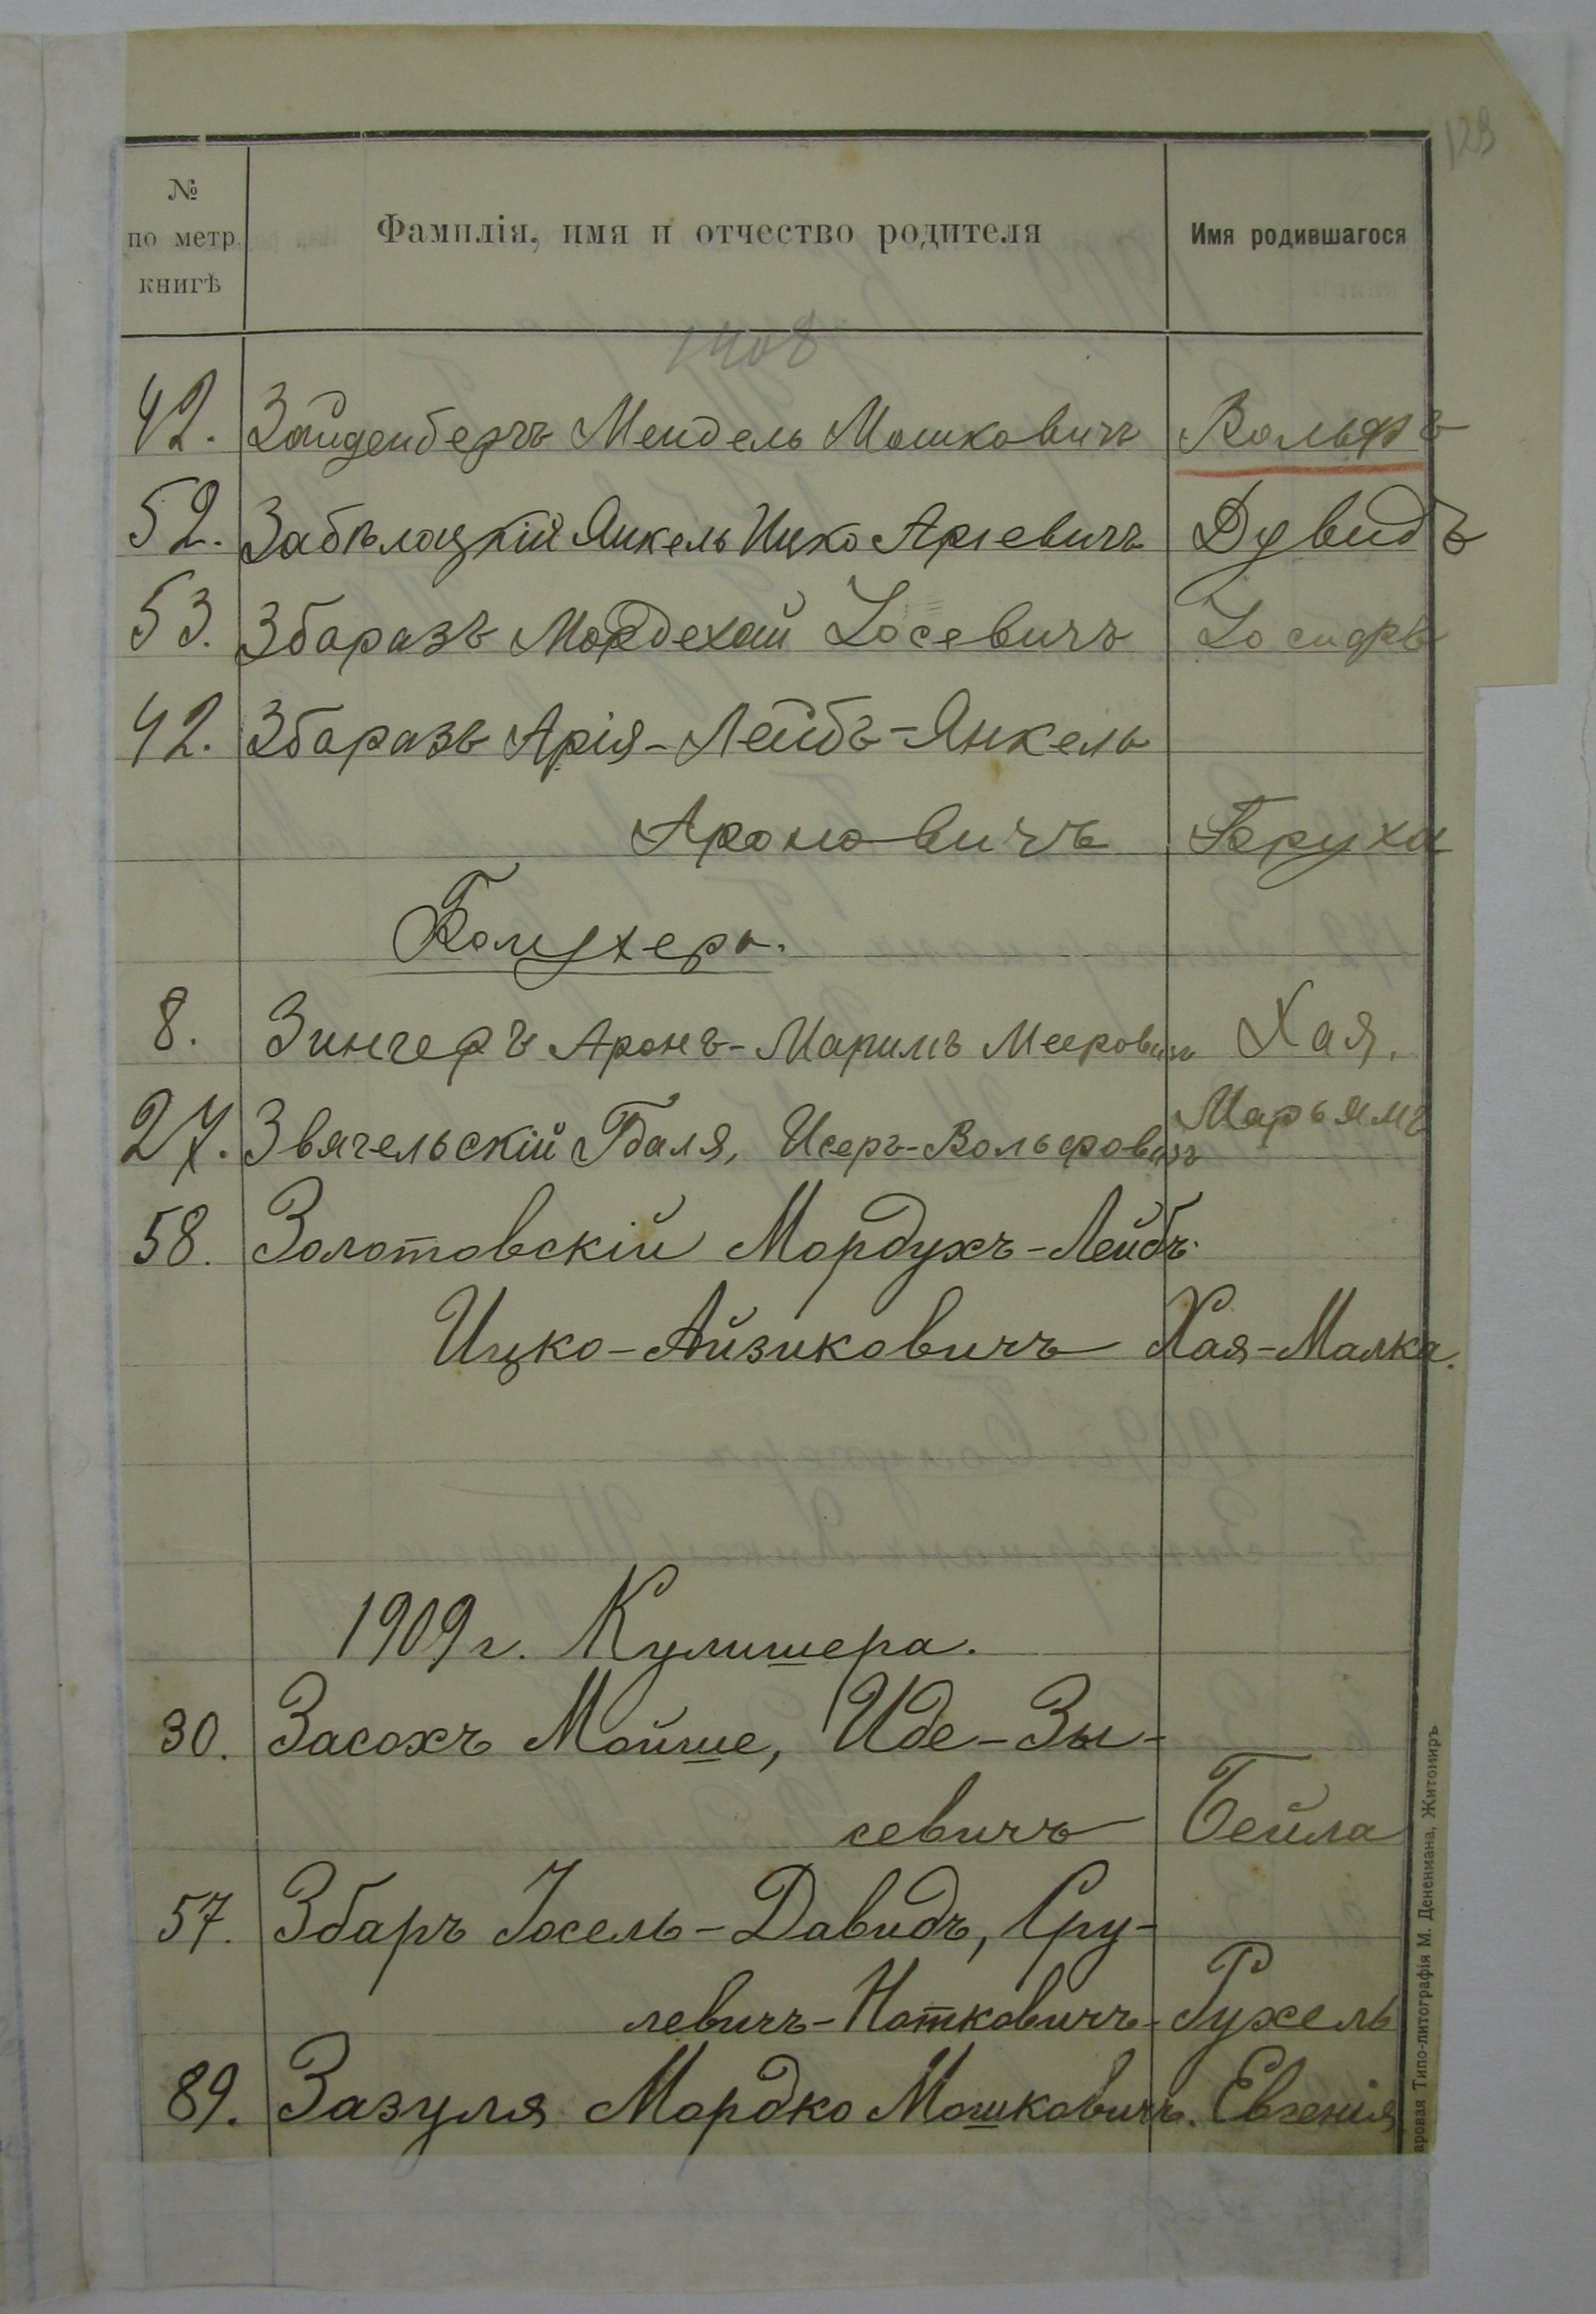 129
№
по метр.
книгѣ
Фамилія, имя и отчество родителя
Имя родившагося
1908
42. Зайденбергъ Мендель Мошковичъ Вольфъ
52. Забѣлоцкій Янкель Ицко Аріевичъ Дувидъ
53. Збаразъ Мордехай Іосевичъ Іосифъ
42. Збаразъ Арія-Лейбъ-Янкель
Ароновичъ Бруха
Болухеръ.
8. Зингеръ Аронъ-Маримъ Мееровичъ Хая.
27. Звягельскій Баля, Исеръ-Вольфовичъ Марьямъ
58. Золотовскій Мордухъ-Лейбъ
Ицко-Айзиковичъ Хая-Малка.
1909 г. Кулишера.
30. Засохъ Мойше, Иде-Зы-
севичъ Бейла
57. Збаръ Іосель-Давидъ, Сру-
левичъ-Нотковичъ Рухель
89. Зазуля Мордко Мошковичъ. Евгенія
аровая Типо-литографія М. Дененмана, Житомиръ